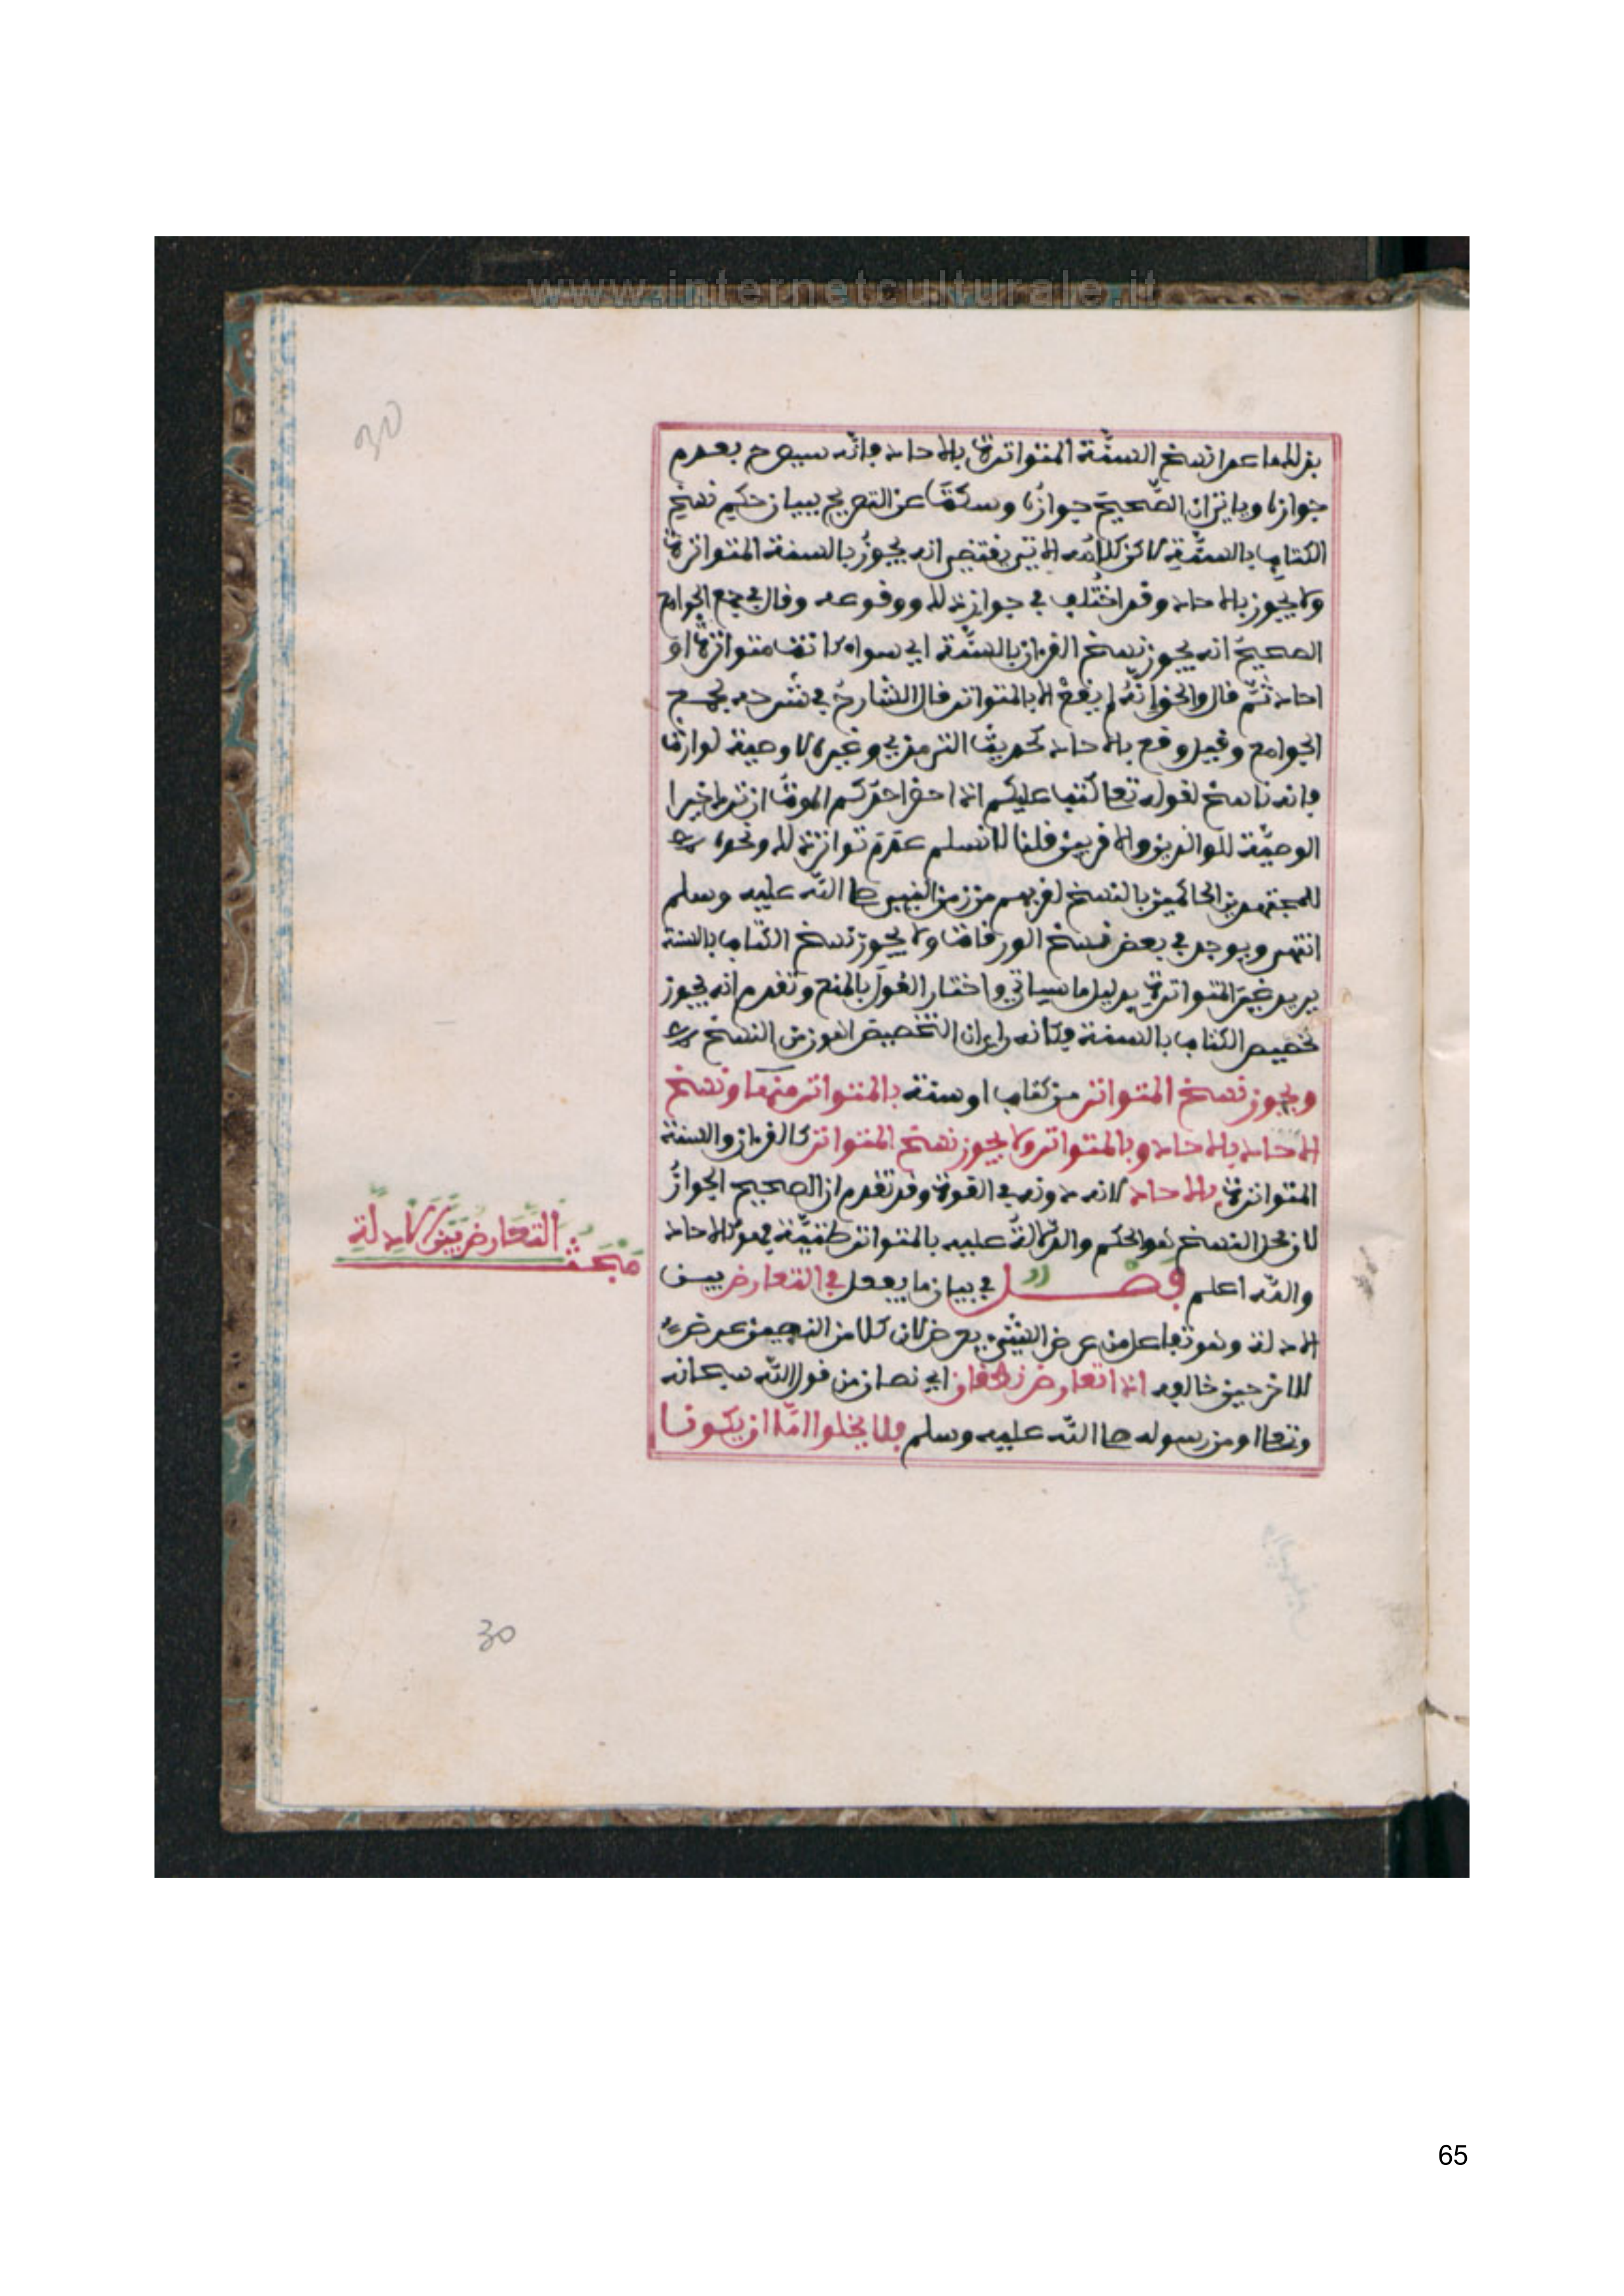 www.internetculturale.it
30
بذلك ما عدا نسخ السنّة المتواترة بالاحاد فانّه سيصرح بعدم
جوازه وياتي ان الصّحيحَ جوازُه وسكتَ عن التصريح ببيان حكم نسخ
الكتاب بالسنَّةِ لاكن كلامُه الاتي يقتضي انه يجوزُ بالسنة المتواترة
ولا يجوز بالاحاد وقد اختُلِف في جواز ذلك ووقوعه وقال في جمع الجوامع
الصحيحُ انه يجوز نسخ القرءان بالسُّنّة اي سواء كانت متواترةً او
احاد ثُمَّ قال والحق انّهُ لم يقعْ الا بالمتواتر قال الشارحُ في شَرحه لجمع
الجوامع وقيل وقع بالاحاد كحديث الترمذي وغيره لا وصية لوارث
فانه ناسخ لقوله تعا كتب عليكم اذا حضر احدَكم الموتُ ان ترك خيرا
الوصيَّة للوالدين والاقربين قلنا لا نسلم عدَمَ تواتر ذلك ونحوه
للمجتهدين الحاكمين بالنسخ لقربهم من زمن النبي صلى اللّه عليه وسلم
انتهى ويوجد في بعض نسخ الورقات ولا يجوز نسخ الكتاب بالسنة
يريد غيرَ المتواترة بدليل ما سياتي واختار القولَ بالمنع وتقدم انه يجوز
تخصيص الكتاب بالسنة وكانه راى ان التخصيص اهون من النسخ
ويجوز نسخ المتواتر من كتاب او سنة بالمتواتر منهما ونسخ
الاحاد بالاحاد وبالمتواتر ولا يجوز نسخ المتواتر كالقرءان والسنة
المتواترة بالاحاد لانه دونه في القوة وقد تقدم ان الصحيح الجوازُ
لان محل النسخ هو الحكم والدّلالةُ عليه بالمتواتر ظنيَّة فهو كالاحاد
واللّه اعلم فصل في بيان ما يفعل في التعارض بين
مَبْحَثُ التَّعَارُضِ بَيْنَ الأَدِلَّةِ
الادلة وهو تفاعل من عرض الشيء يعرض لان كلا من النصين عرض
للاخر حين خالفه اذا تعارض نطقان اي نصان من قول اللّه سبحانه
وتعا او من رسوله صلى اللّه عليه وسلم فلا يخلوا امّا ان يكونا
30
65